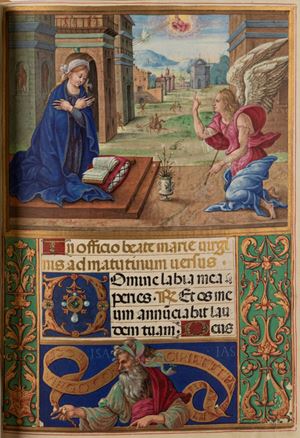 In officio beate marie virgi
nis ad matutinum versus.
Domine labia mea
peries. R Et os me
um annūciabit lau
dem tuam. Deus
ISA IAS